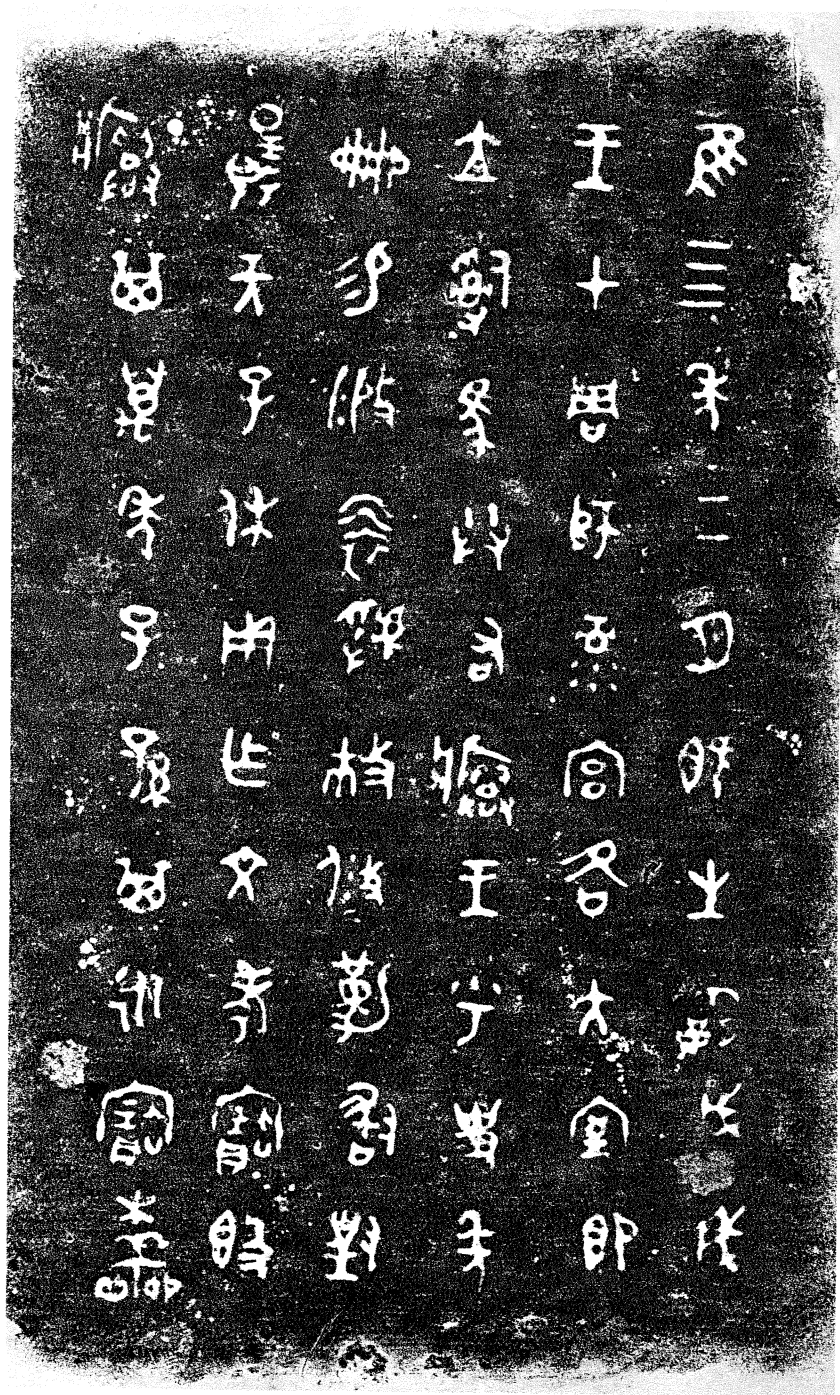 隹四年二月既生霸戊戌
王才周師彔宮各大室即
立𤔲馬共右𤼈王乎史年
冊易虢攸勒敢對
揚天子休用乍文考寶𣪘
𤼈其萬年子孫其永寶木羊冊